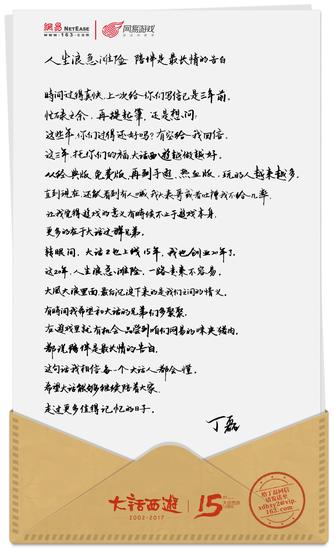 網易 NETEASE
www.163.com
网易游戏
人生浪急滩险 陪伴是最长情的告白
时间过得真快,上次给你们写信已是三年前。
忙碌之余,再提起笔,还是想问:
这些年,你们过得还好吗?有空给我回信。
这三年,托你们的福,大话西游越做越好。
从经典版、免费版,再到手游、热血版,玩的人越来越多。
直到现在,还能看到有人喊
让我觉得游戏的意义有时候不止于游戏本身。
更多的在于大话这群兄弟。
转眼间,大话2也上线15年,我也创业20年了。
这20年,人生浪急滩险,一路走来不容易。
大风大浪里面,最后沉淀下来的是我们之间的情义。
有时间我希望和大话的兄弟们多聚聚。
在游戏里就有机会品尝到咱们网易的味央猪肉。
都说陪伴是最长情的告白。
这句话我相信每一个大话人都会懂。
希望大话能够继续陪着大家,
走过更多值得记忆的日子。
丁磊
大话西游
2002-2017
15
给丁磊回信
请发送至
xdhxy2@vip.
163.com